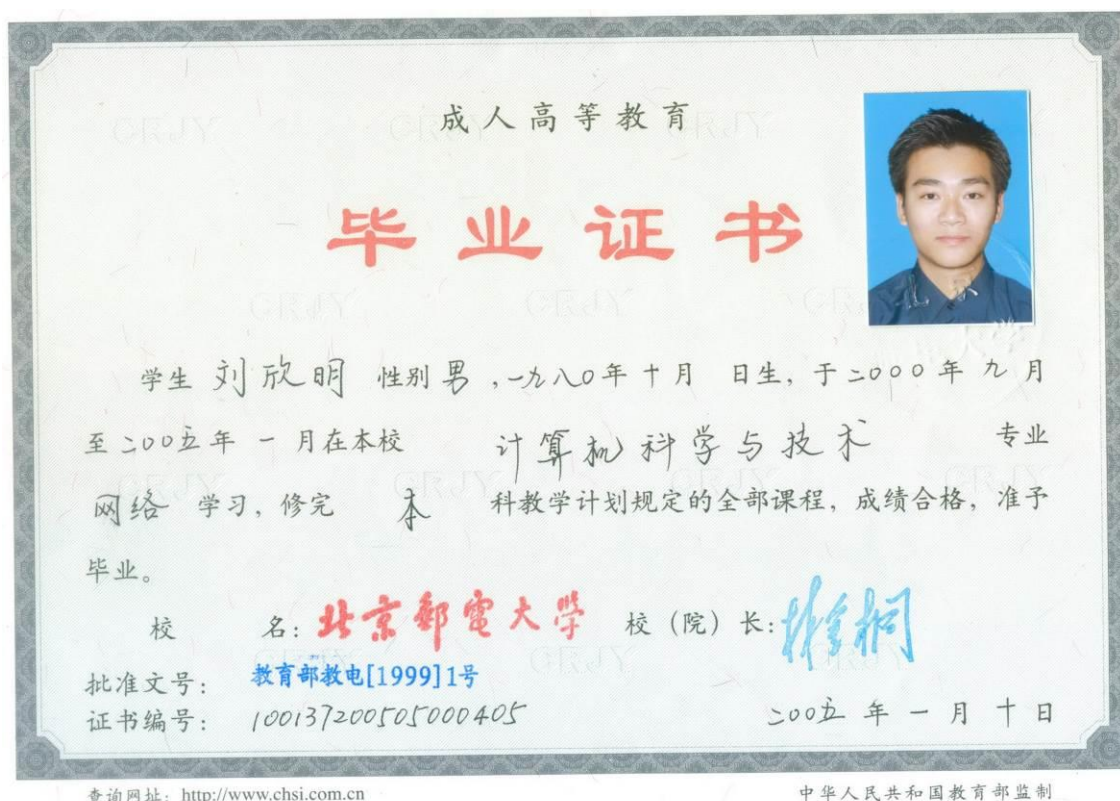 成人高等教育
毕业证书
学生 刘欣明 性别 男 ,一九八〇年十月 日生, 于二〇〇〇年九月
至二〇〇五年 一 月在本校 计算机科学与技术 专业
网络 学习, 修完 本 科教学计划规定的全部课程, 成绩合格, 准予
毕业。
校 名: 北京邮电大学 校（院）长:
批准文号: 教育部教电[1999]1号
证书编号: 100137200505000405
二〇〇五 年 一 月 十 日
查询网址: http://www.chsi.com.cn
中华人民共和国教育部监制